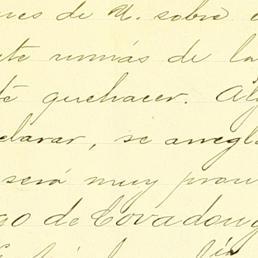 nes de U. sobre e
te rumás de la
té quehacer. Alg
clarar, se arregla
será muy pron
go de Covadong